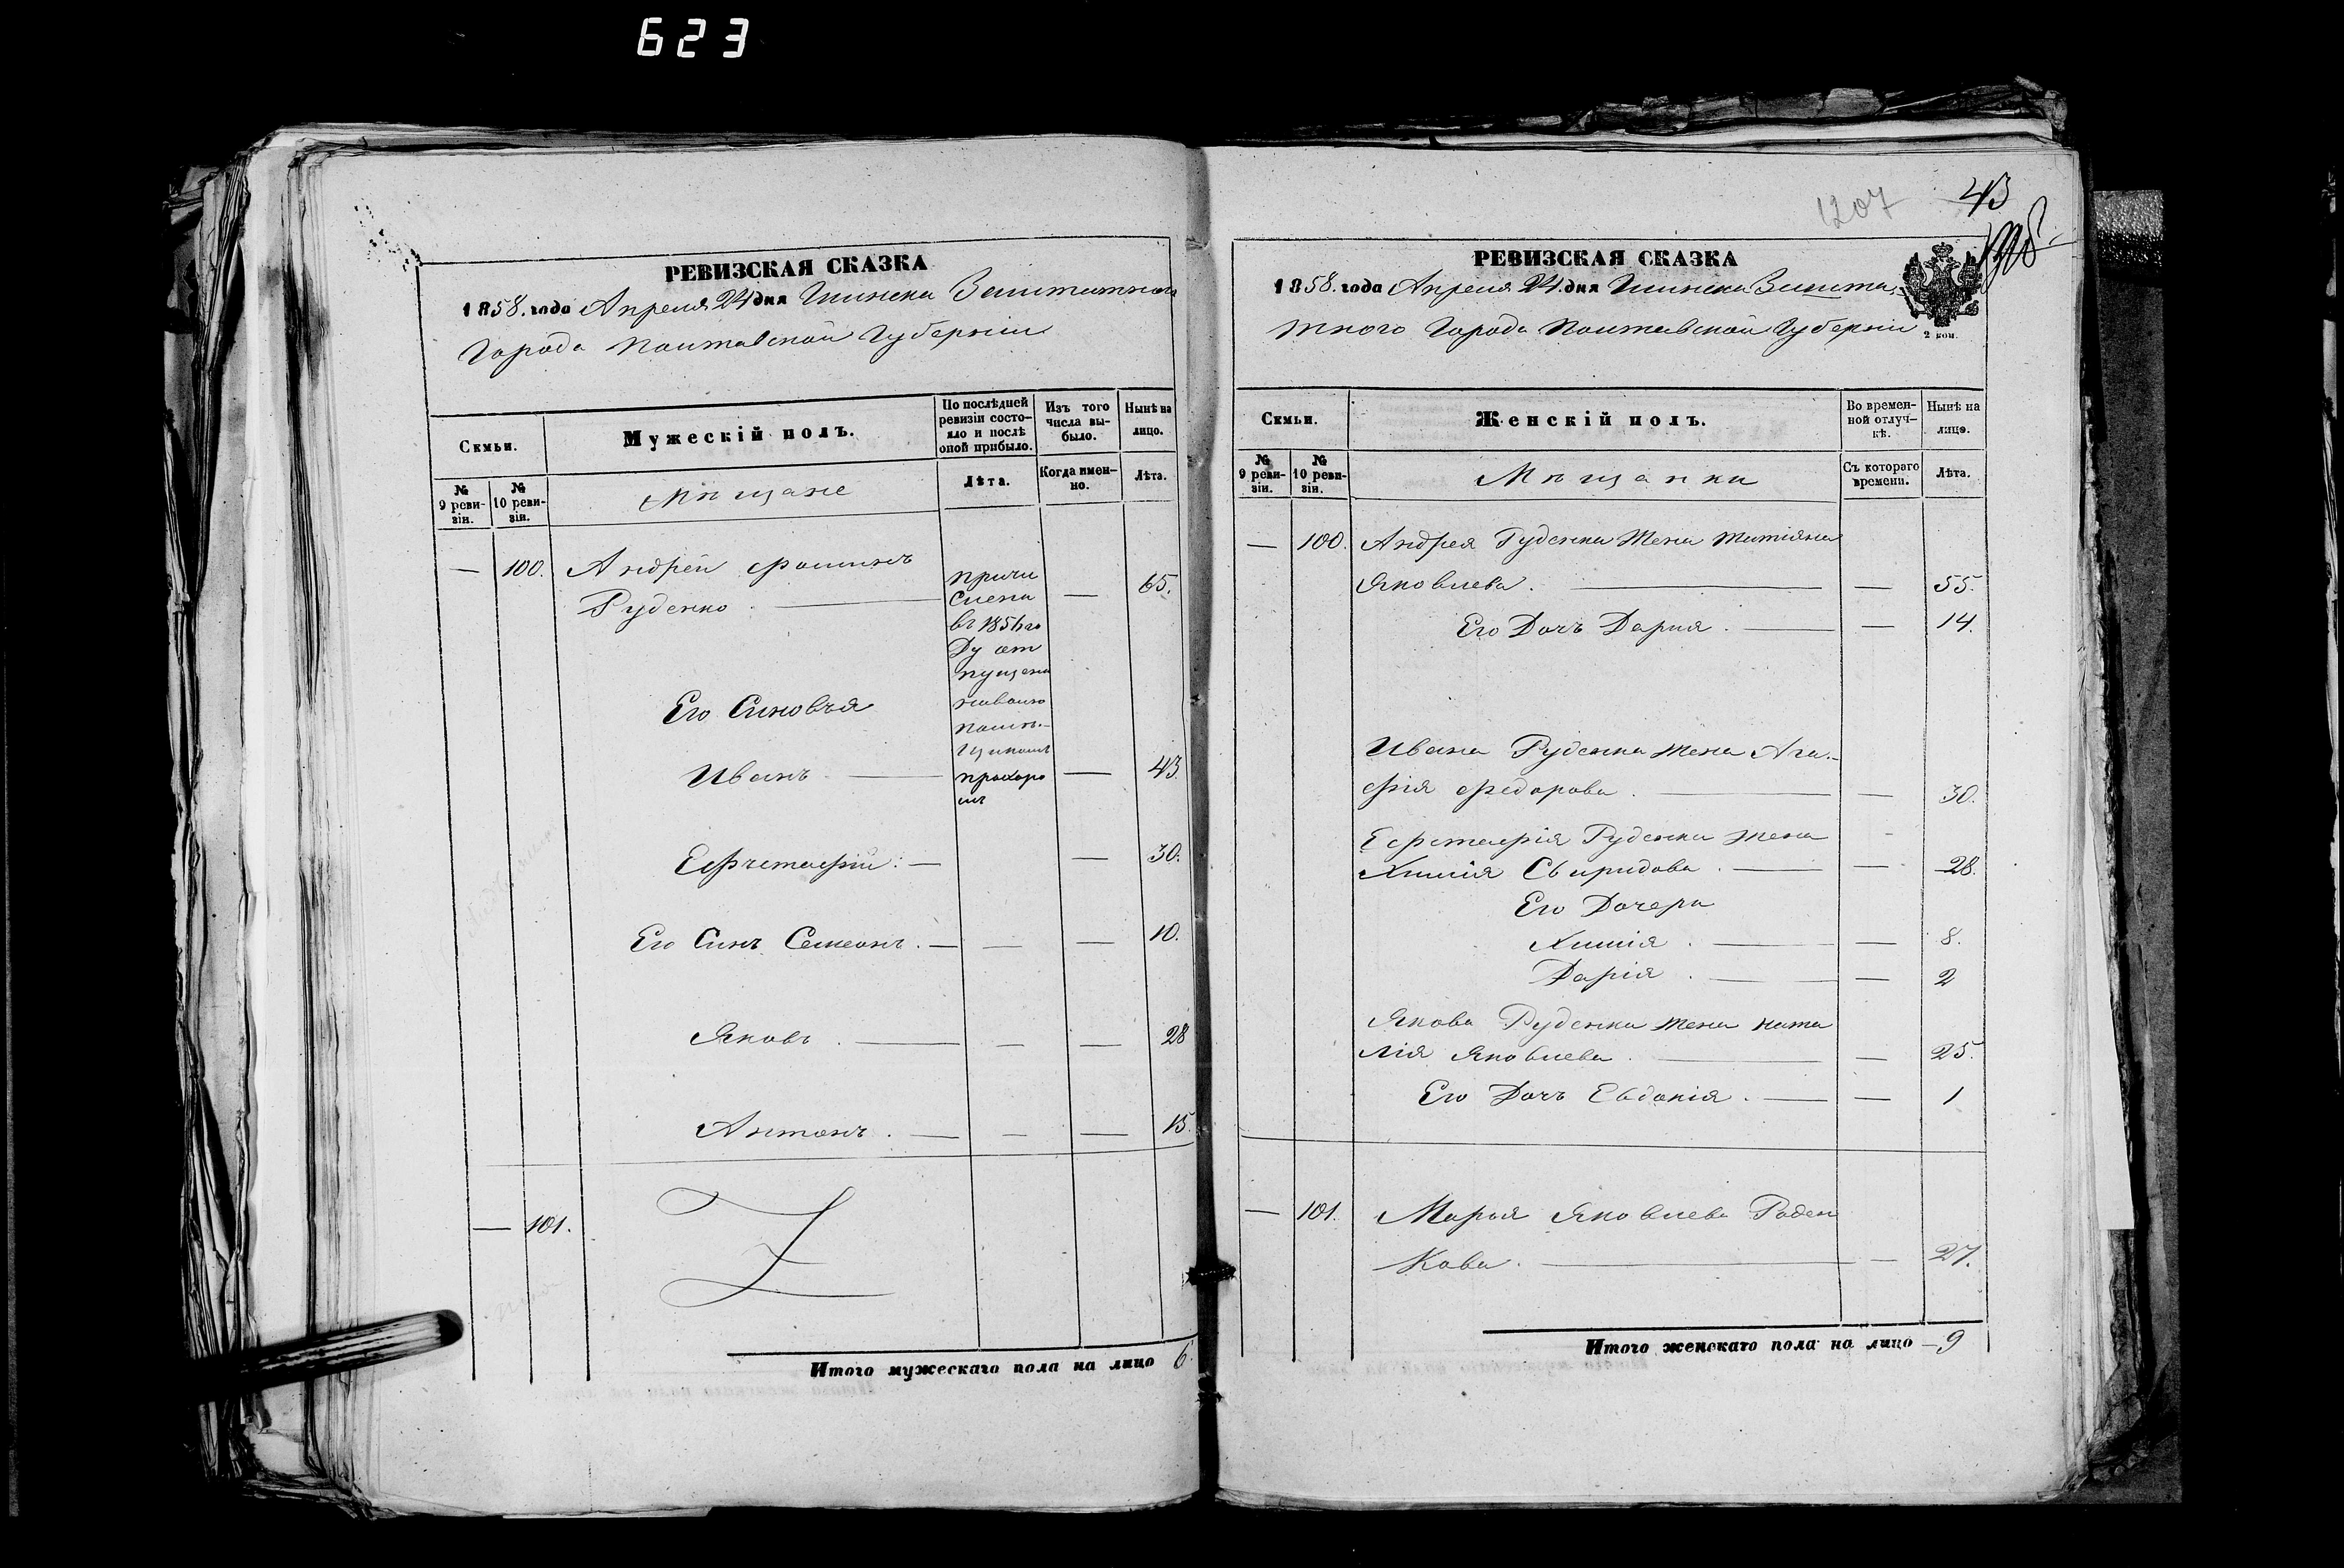 623
РЕВИЗСКАЯ СКАЗКА
1858. года Апреля 24 дня Глинска Заштатнаго
Города Полтавской Губерніи
Семьи.
Мужескій полъ.
По послѣдней
ревизіи состо-
яло и послѣ
оной прибыло.
Изъ того
числа вы-
было.
Нынѣ на
лицо.
№
9 реви-
зіи.
№
10 реви-
зіи.
Мѣщане
Лѣта.
Когда имен-
но.
Лѣта.
— 100. Андрей Фоминъ
Руденко — — 65.
причи
слены
въ 185 го
Ду от
пущены
наволю
помѣ-
щикомъ
Его Синовъя
Иванъ — — 43.
Ефъстафій. — — 30.
Его Синъ Семеонъ. — — — 10.
Яковъ. — — — 28
Антонъ. — — — 15.
— 101.
Итого мужескаго пола на лицо 6.
1207
43
РЕВИЗСКАЯ СКАЗКА
1858. года Апреля 24. дня Глинска Зашта-
тного Города Полтавской Губерніи
2 коп.
Семьи.
Женскій полъ.
Во времен-
ной отлуч-
кѣ.
Нынѣ на
лицо.
№
9 реви-
зіи.
№
10 реви-
зіи.
Мѣщанки
Съ котораго
времени.
Лѣта.
— 100. Андрея Руденка Жена Татіяна
Яковлева. — — 55.
Его Дочъ Дария. — — 14.
Ивана Руденка жена Ага-
фія Федорова. — — 30.
Ефстафія Руденка жена
Свиридова. — — 28.
Его Дочери
— — 8.
Дарія. — — 2
Якова Руденка жена ната
лія Яковлева. — — 25.
Его Дочъ Евдокія. — — 1
— 101. Марья Яковлева Роден
Кова. — — 27.
Итого женскаго пола на лицо — 9